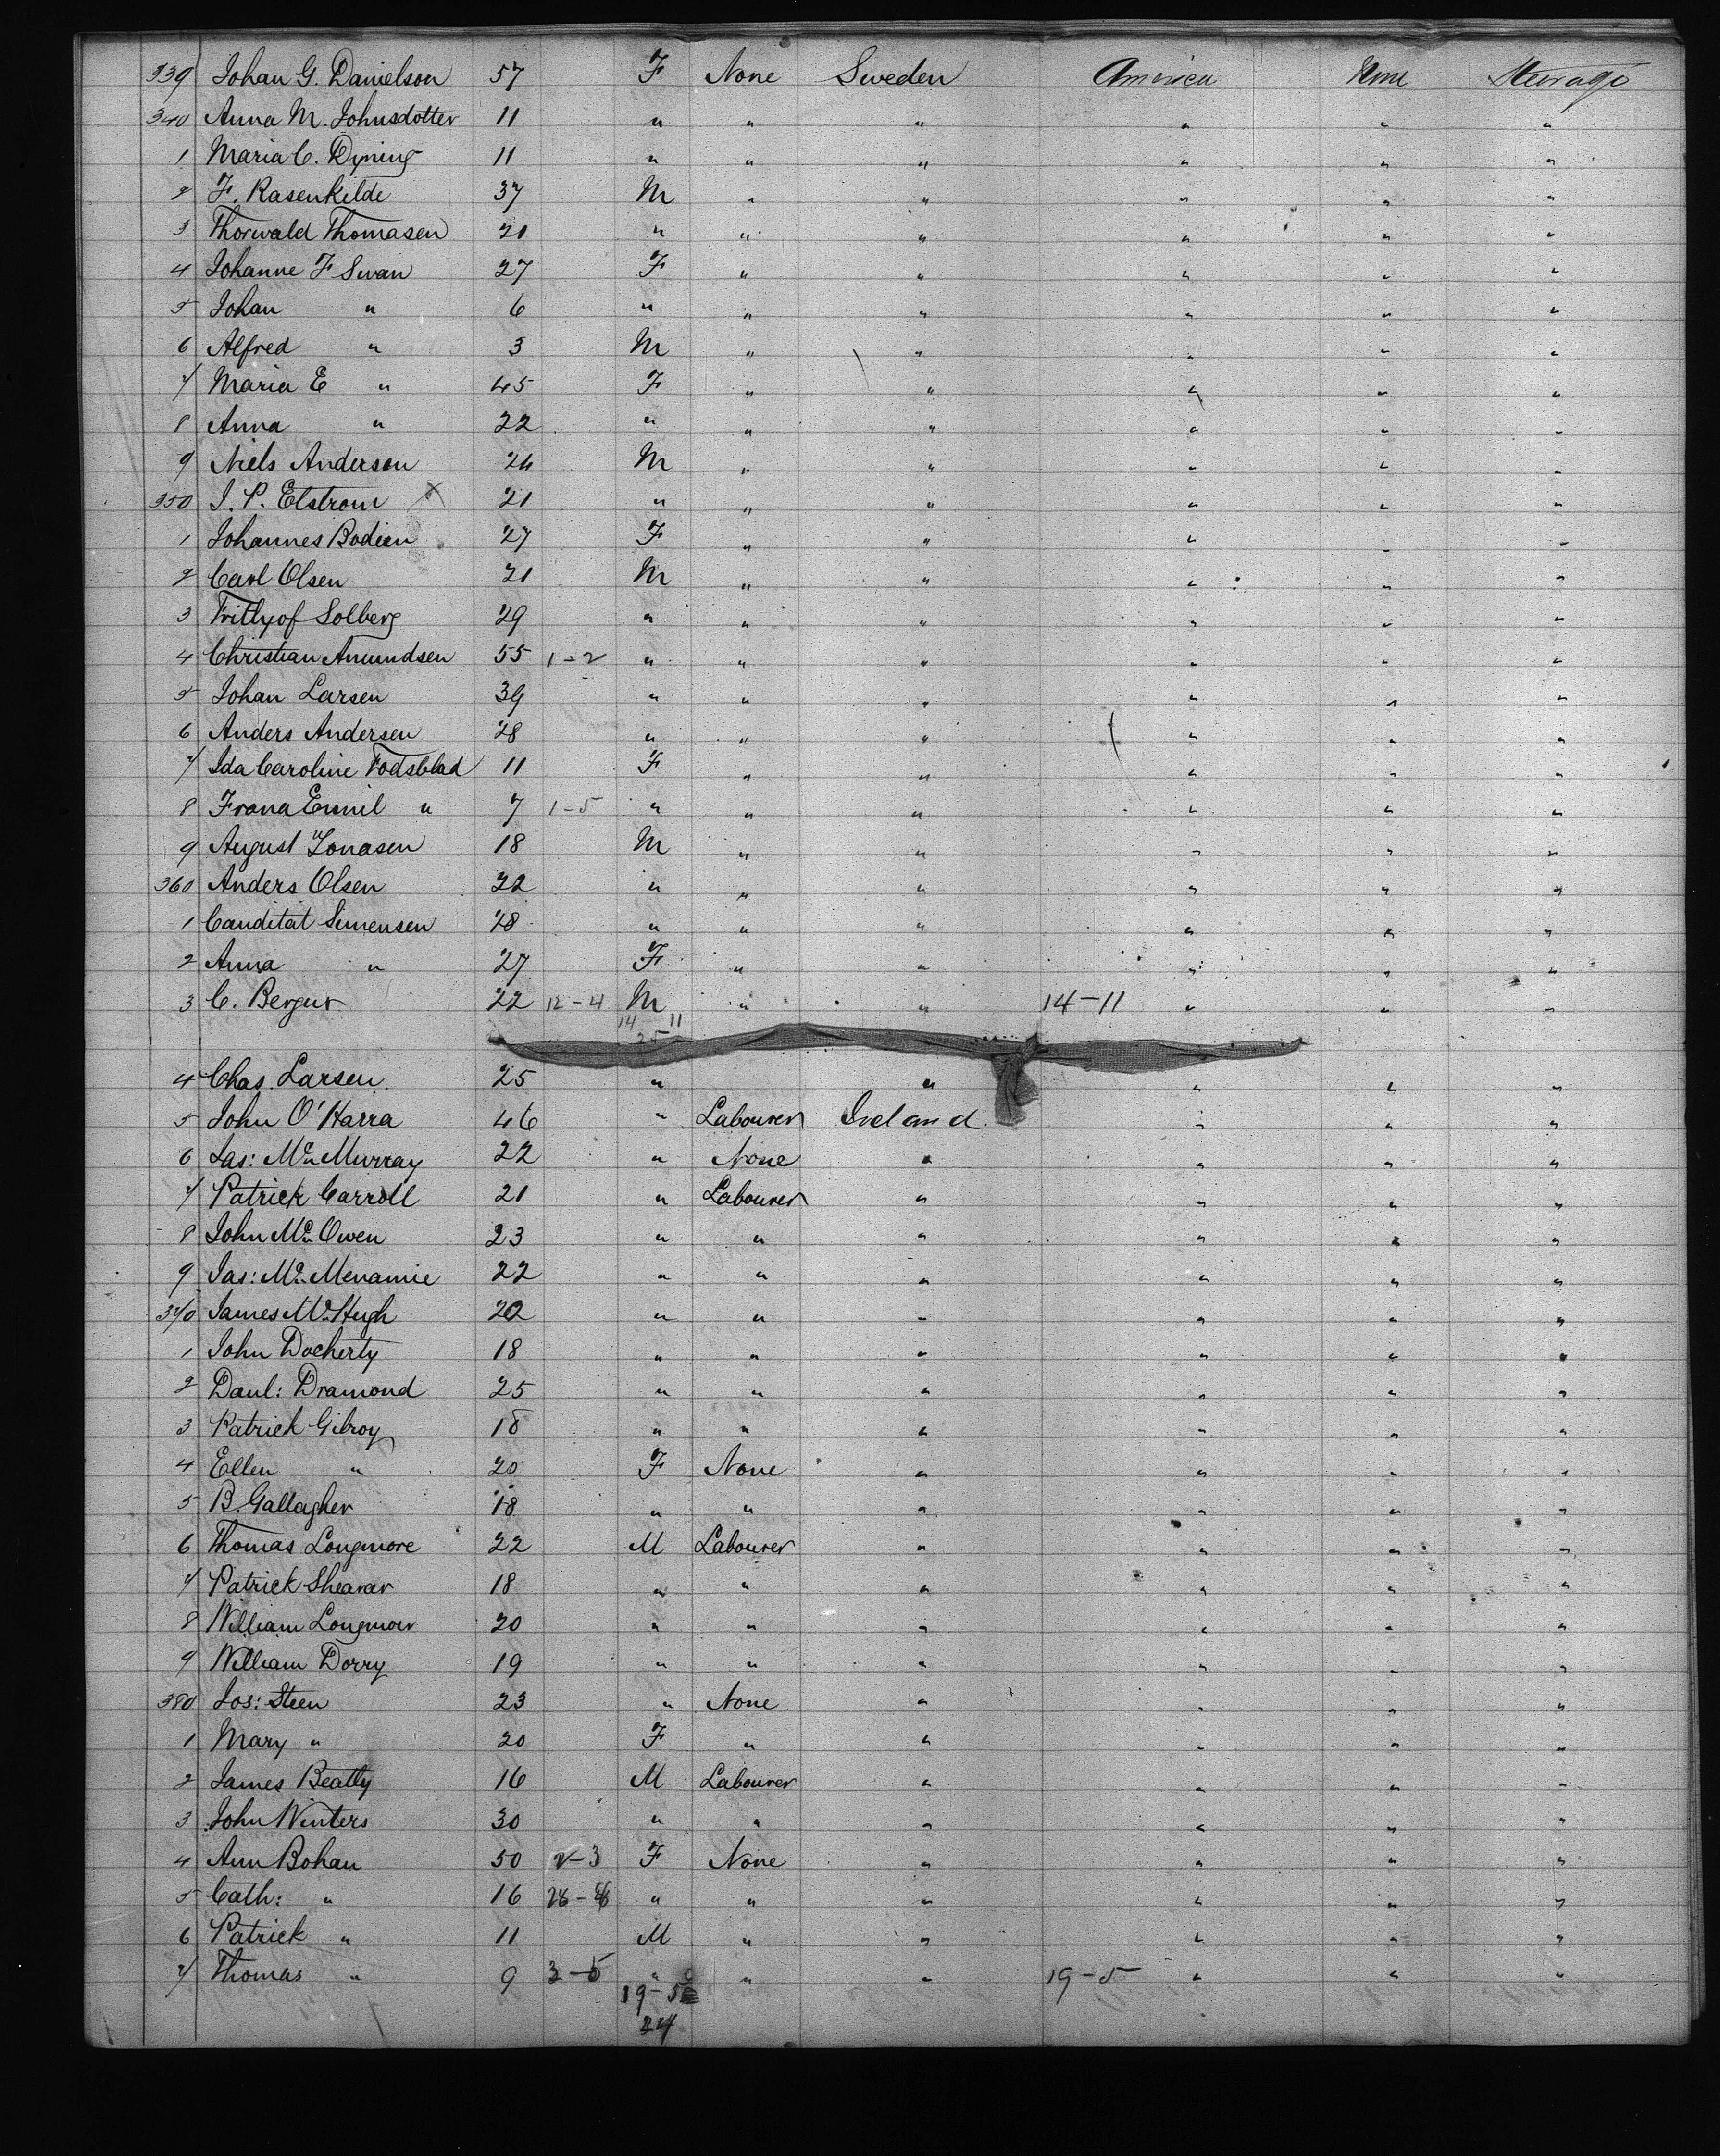 339 Johan G. Danielson 57 F None Sweden America None Steerage
340 Anna M. Johnsdotter 11 " " " " " "
1 Maria C. Dyning 11 " " " " " "
2 F. Rasenkilde 37 M " " " " "
3 Thorwald Thomasen 21 " " " " " "
4 Johanne F Swan 27 F " " " " "
5 Johan " 6 " " " " " "
6 Alfred " 3 M " " " " "
7 Maria E " 45 F " " " " "
8 Anna " 22 " " " " " "
9 Niels Andersen 24 M " " " " "
350 J. P. Elstrom X 21 " " " " " "
1 Johannes Bodien 27 F " " " " "
2 Carl Olsen 21 M " " " " "
3 Frithyof Solberg 29 " " " " " "
4 Christian Amundsen 55 1-2 " " " " " "
5 Johan Larsen 39 " " " " " "
6 Anders Andersen 28 " " " " " "
7 Ida Caroline Fodsblad 11 F " " " " "
8 Frona Emil " 7 1-5 " " " " " "
9 August Jonasen 18 M " " " " "
360 Anders Olsen 22 " " " " " "
1 Canditat Simensen 28 " " " " " "
2 Anna " 27 F " " " " "
3 C. Bergur 22 12-4 M " " 14-11 " " "
14 11
25
4 Chas. Larsen 25 " " " " "
5 John O'Harra 46 " Labourer Ireland " " "
6 Jas: McMurray 22 " None " " " "
7 Patrick Carroll 21 " Labourer " " " "
8 John McOwen 23 " " " " " "
9 Jas: McMenamie 22 " " " " " "
370 James McHugh 20 " " " " " "
1 John Docherty 18 " " " " " "
2 Danl: Dramond 25 " " " " " "
3 Patrick Gilroy 18 " " " " " "
4 Ellen " 20 F None " " " "
5 B. Gallagher 18 " " " " " "
6 Thomas Longmore 22 M Labourer " " " "
7 Patrick Shearar 18 " " " " " "
8 William Longmor 20 " " " " " "
9 William Dorry 19 " " " " " "
380 Jos: Steen 23 " None " " " "
1 Mary " 20 F " " " " "
2 James Beatty 16 M Labourer " " " "
3 John Winters 30 " " " " " "
4 Ann Bohan 50 2-3 F None " " " "
5 Cath: " 16 " " " " " "
6 Patrick " 11 M " " " " "
7 Thomas " 9 3-5 " " " 19-5 " " "
19-5
24